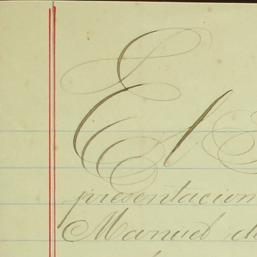 El
presentacion
Manuel de